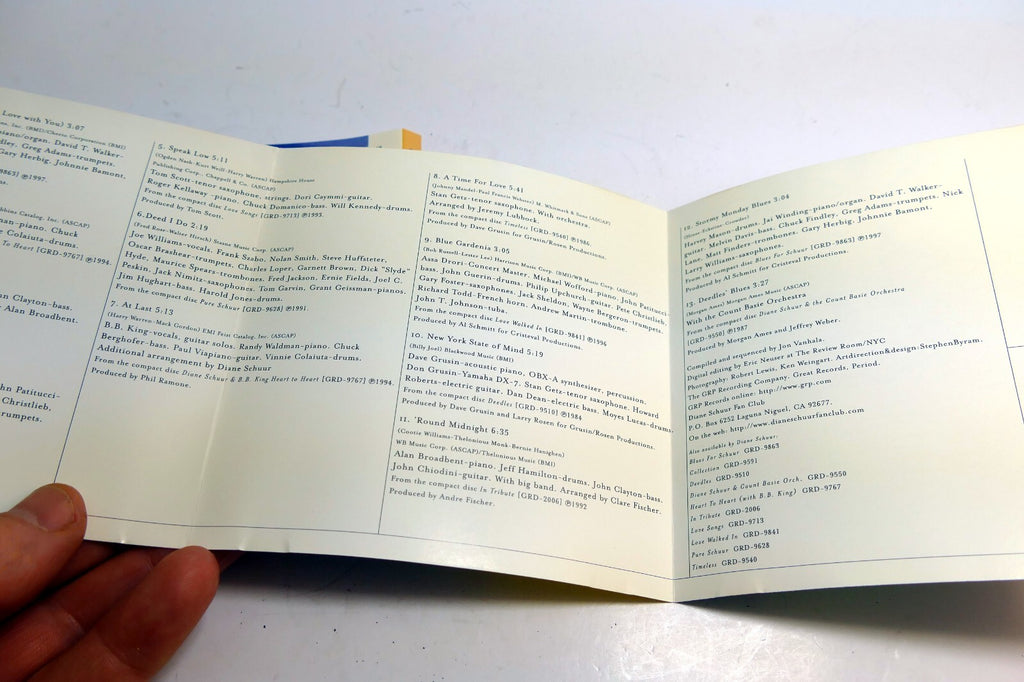 Love with You) 3:07
Inc. (BMI)/Cherio Corporation (BMI)
piano/organ. David T. Walker-
Greg Adams-trumpets.
Gary Herbig. Johnnie Bamont.
9863] ℗1997.
Catalog, Inc. (ASCAP)
man-piano. Chuck
Colaiuta-drums.
To Heart [GRD-9767] ℗1994.
Clayton-bass.
Alan Broadbent.
Patitucci-
Christlieb.
trumpets.
5. Speak Low 5:11
(Ogden Nash-Kurt Weill-Harry Warren) Hampshire House
Publishing Corp., Chappell & Co. (ASCAP)
Tom Scott-tenor saxophone, strings. Dori Caymmi-guitar.
Roger Kellaway-piano. Chuck Domanico-bass. Will Kennedy-drums.
From the compact disc Love Songs [GRD-9713] ℗1993.
Produced by Tom Scott.
6. Deed I Do 2:19
(Fred Rose-Walter Hirsch) Stasny Music Corp. (ASCAP)
Joe Williams-vocal. Frank Szabo, Nolan Smith, Steve Huffsteter,
Oscar Brashear-trumpets. Charles Loper, Garnett Brown, Dick "Slyde"
Hyde, Maurice Spears-trombones. Fred Jackson, Ernie Fields, Joel C.
Peskin, Jack Nimitz-saxophones. Tom Garvin, Grant Geissman-pianos.
Jim Hughart-bass. Harold Jones-drums.
From the compact disc Pure Schuur [GRD-9628] ℗1991.
7. At Last 5:13
(Harry Warren-Mack Gordon) EMI Feist Catalog, Inc. (ASCAP)
B.B. King-vocals, guitar solos. Randy Waldman-piano. Chuck
Berghofer-bass. Paul Viapiano-guitar. Vinnie Colaiuta-drums.
Additional arrangement by Diane Schuur
From the compact disc Diane Schuur & B.B. King Heart to Heart [GRD-9767] ℗1994.
Produced by Phil Ramone.
8. A Time For Love 5:41
(Johnny Mandel-Paul Francis Webster) M. Whitmark & Sons (ASCAP)
Stan Getz-tenor saxophone. With orchestra.
Arranged by Jeremy Lubbock.
From the compact disc Timeless [GRD-9540] ℗1986.
Produced by Dave Grusin for Grusin/Rosen Productions.
9. Blue Gardenia 3:05
(Bob Russell-Lester Lee) Harrison Music Corp. (BMI)/WB Music Corp. (ASCAP)
Assa Drori-Concert Master, Michael Wofford-piano, John Patitucci-
bass. John Guerin-drums. Philip Upchurch-guitar. Pete Christlieb,
Gary Foster-saxophones. Jack Sheldon, Wayne Bergeron-trumpets.
Richard Todd-French horn. Andrew Martin-trombone.
John T. Johnson-tuba.
From the compact disc Love Walked In [GRD-9841] ℗1996
Produced by Al Schmitt for Cristeval Productions.
10. New York State of Mind 5:19
(Billy Joel) Blackwood Music (BMI)
Dave Grusin-acoustic piano, OBX-A synthesizer, percussion.
Don Grusin-Yamaha DX-7. Stan Getz-tenor saxophone. Howard
Roberts-electric guitar. Dan Dean-electric bass. Moyes Lucas-drums.
From the compact disc Deedles [GRD-9510] ℗1984
Produced by Dave Grusin and Larry Rosen for Grusin/Rosen Productions.
11. 'Round Midnight 6:35
(Cootie Williams-Thelonious Monk-Bernie Hanighen)
WB Music Corp. (ASCAP)/Thelonious Music (BMI)
Alan Broadbent-piano. Jeff Hamilton-drums. John Clayton-bass.
John Chiodini-guitar. With big band. Arranged by Clare Fischer.
From the compact disc In Tribute [GRD-2006] ℗1992
Produced by Andre Fischer.
12. Stormy Monday Blues 3:04
Harvey Mason-drums. Jai Winding-piano/organ. David T. Walker-
guitar. Melvin Davis-bass. Chuck Findley, Greg Adams-trumpets. Nick
Lane, Matt Finders-trombones. Gary Herbig, Johnnie Bamont,
Larry Williams-saxophones.
From the compact disc Blues For Schuur [GRD-9863] ℗1997
Produced by Al Schmitt for Cristeval Productions.
13. Deedles' Blues 3:27
(Morgan Ames) Morgan Ames Music (ASCAP)
With the Count Basie Orchestra
From the compact disc Diane Schuur & the Count Basie Orchestra
[GRD-9550] ℗1987
Produced by Morgan Ames and Jeffrey Weber.
Compiled and sequenced by Jon Vanhala.
Digital editing by Eric Neuser at The Review Room/NYC
Photography: Robert Lewis, Ken Weingart. Artdirection&design:StephenByram.
The GRP Recording Company. Great Records, Period.
GRP Records online: http://www.grp.com
Diane Schuur Fan Club
P.O. Box 6252 Laguna Niguel, CA 92677.
On the web: http://www.dianeschuurfanclub.com
Also available by Diane Schuur:
Blues For Schuur GRD-9863
Collection GRD-9591
Deedles GRD-9510
Diane Schuur & Count Basie Orch. GRD-9550
Heart To Heart (with B.B. King) GRD-9767
In Tribute GRD-2006
Love Songs GRD-9713
Love Walked In GRD-9841
Pure Schuur GRD-9628
Timeless GRD-9540